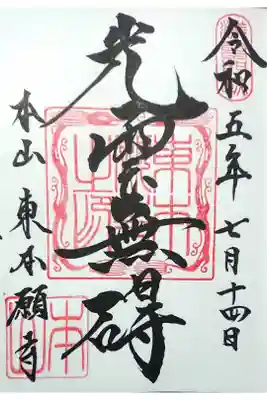 令和五年七月十四日
光雲無碍
本山東本願寺